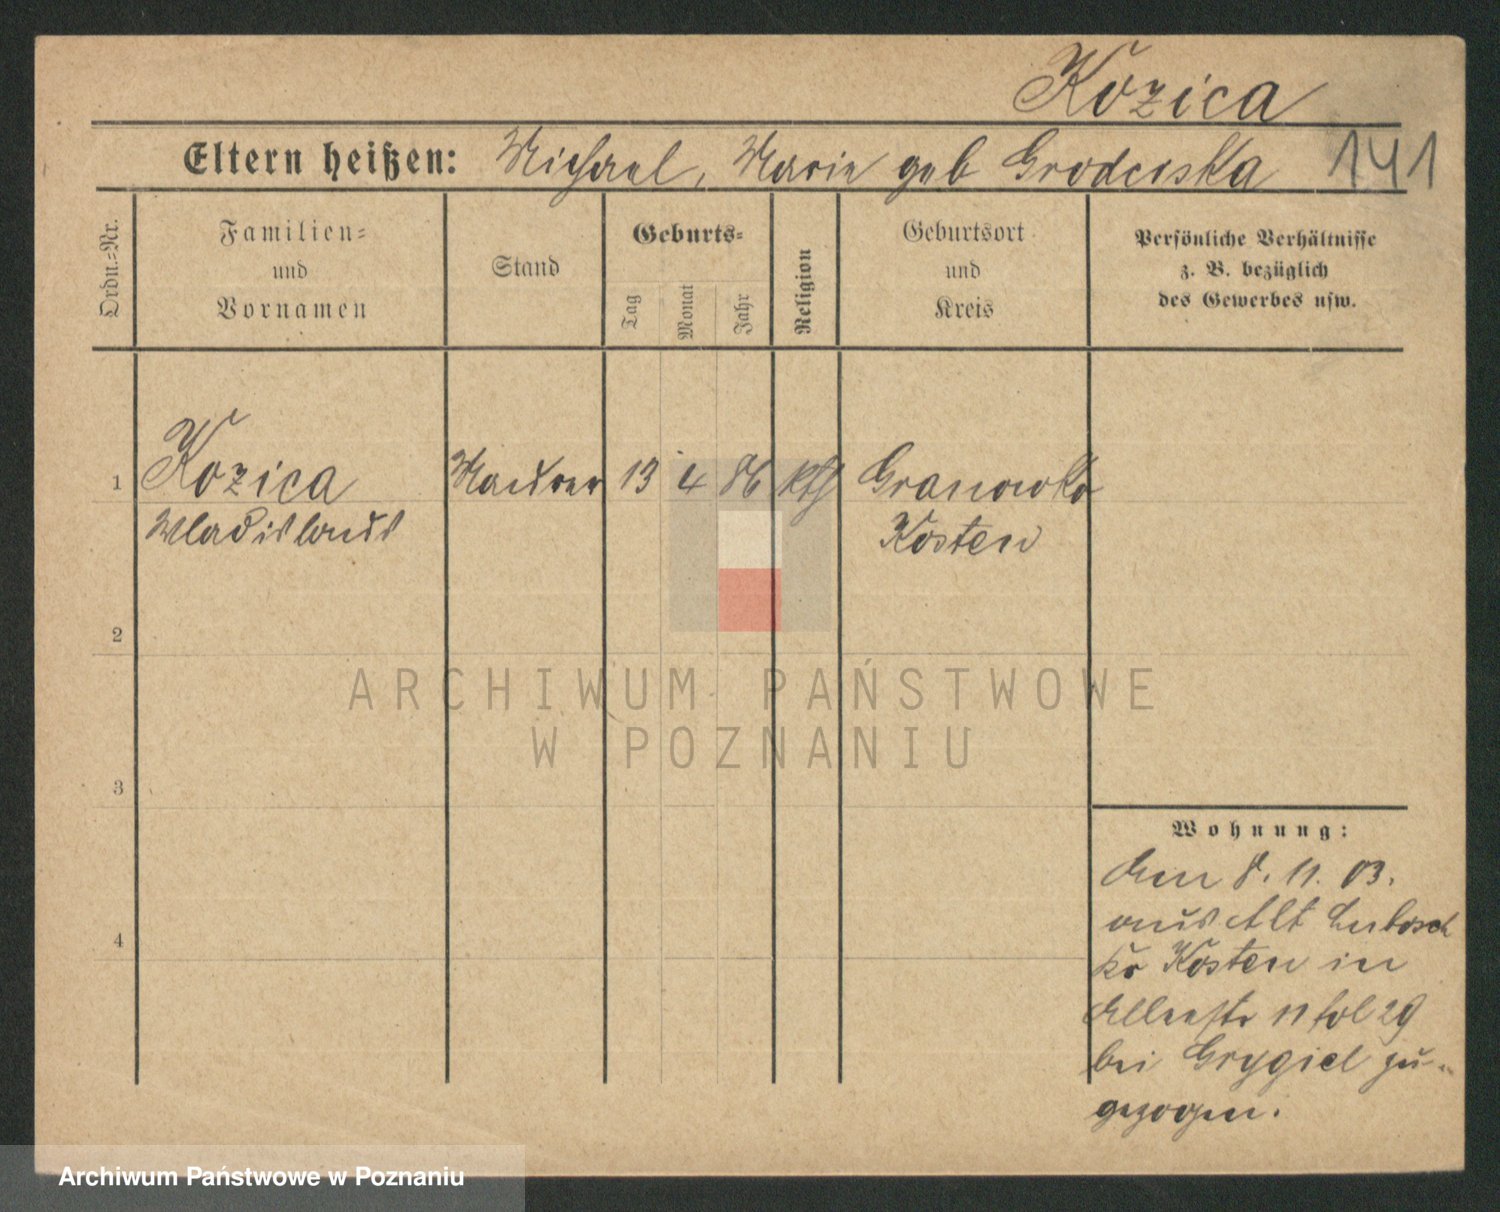 Kozica
Eltern heißen: Michael, Marie geb Grodciska 141
Ordn.=Nr.
Familien=
und
Vornamen
Stand
Geburts=
Tag
Monat
Jahr
Religion
Geburtsort
und
Kreis
Persönliche Verhältnisse
z. B. bezüglich
des Gewerbes usw.
1 Kozica Maurer 13 4 86 kth Granowko
Wladislaus Kosten
2
3
4
Wohnung:
den 8. 11. 03.
aus Alt Lubosch
Kr Kosten in
11 fol 29
bei Grygiel zu-
gezogen.
ARCHIWUM PAŃSTWOWE
W POZNANIU
Archiwum Państwowe w Poznaniu